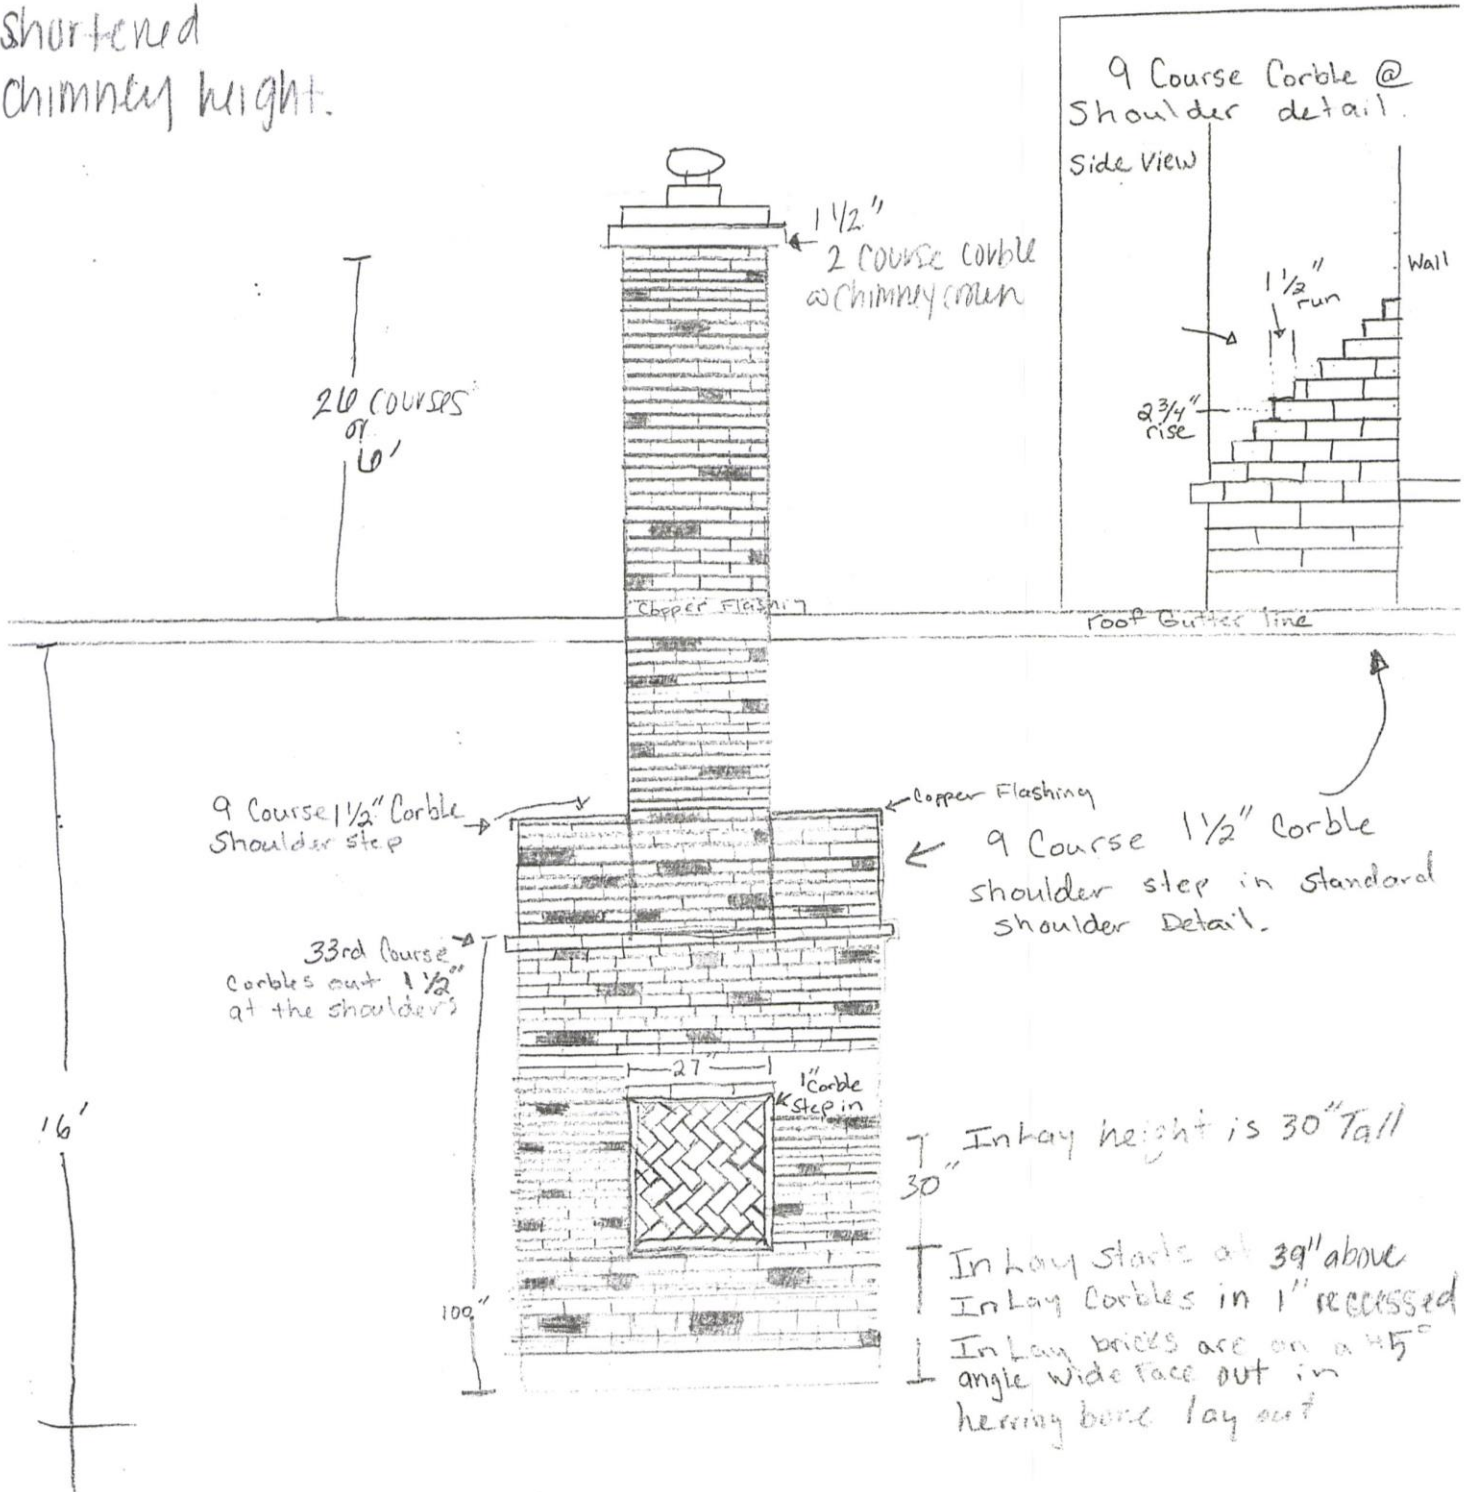 shortened
chimney height.
9 Course Corble @
Shoulder detail.
Side View
1 1/2"
run
Wall
2 3/4"
rise
1 1/2"
2 Course Corble
@ chimney crown
26 courses
or
6'
Copper Flashing
roof Gutter line
9 Course 1 1/2" Corble
Shoulder step
Copper Flashing
9 Course 1 1/2" Corble
shoulder step in standard
shoulder Detail.
33rd Course
Corbles out 1 1/2"
at the shoulders
27"
1" Corble
Step in
16'
InLay height is 30" Tall
30"
InLay starts at 39" above
InLay Corbles in 1" reccessed
InLay bricks are on a 45°
angle wide face out in
herring bone lay out
100"